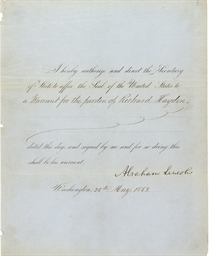 I hereby authorize and direct the Secretary
of State to affix the Seal of the United States to
a Warrant for the pardon of Richard Hayden,
dated this day, and signed by me and for so doing this
shall be his warrant.
Abraham Lincoln
Washington, 26th May, 1862